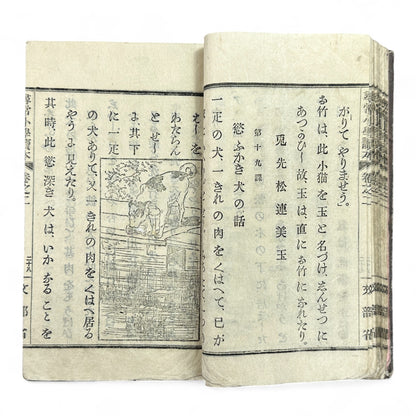 がりて、やりませう。
お竹は、此小猫を玉と名づけ、しんせつに
あつかひし故、玉は、直にお竹になれたり。
兎先松連美玉
第十九課
慾ふかき犬の話
一疋の犬、一きれの肉をくはへて、己が
とせし
よ、其下
に一疋
の犬ありて、又一きれの肉をくはへ居る
やうに見えたり。
其時、此慾深き犬は、いかなることを
尋常小學讀本 卷之二
文部省